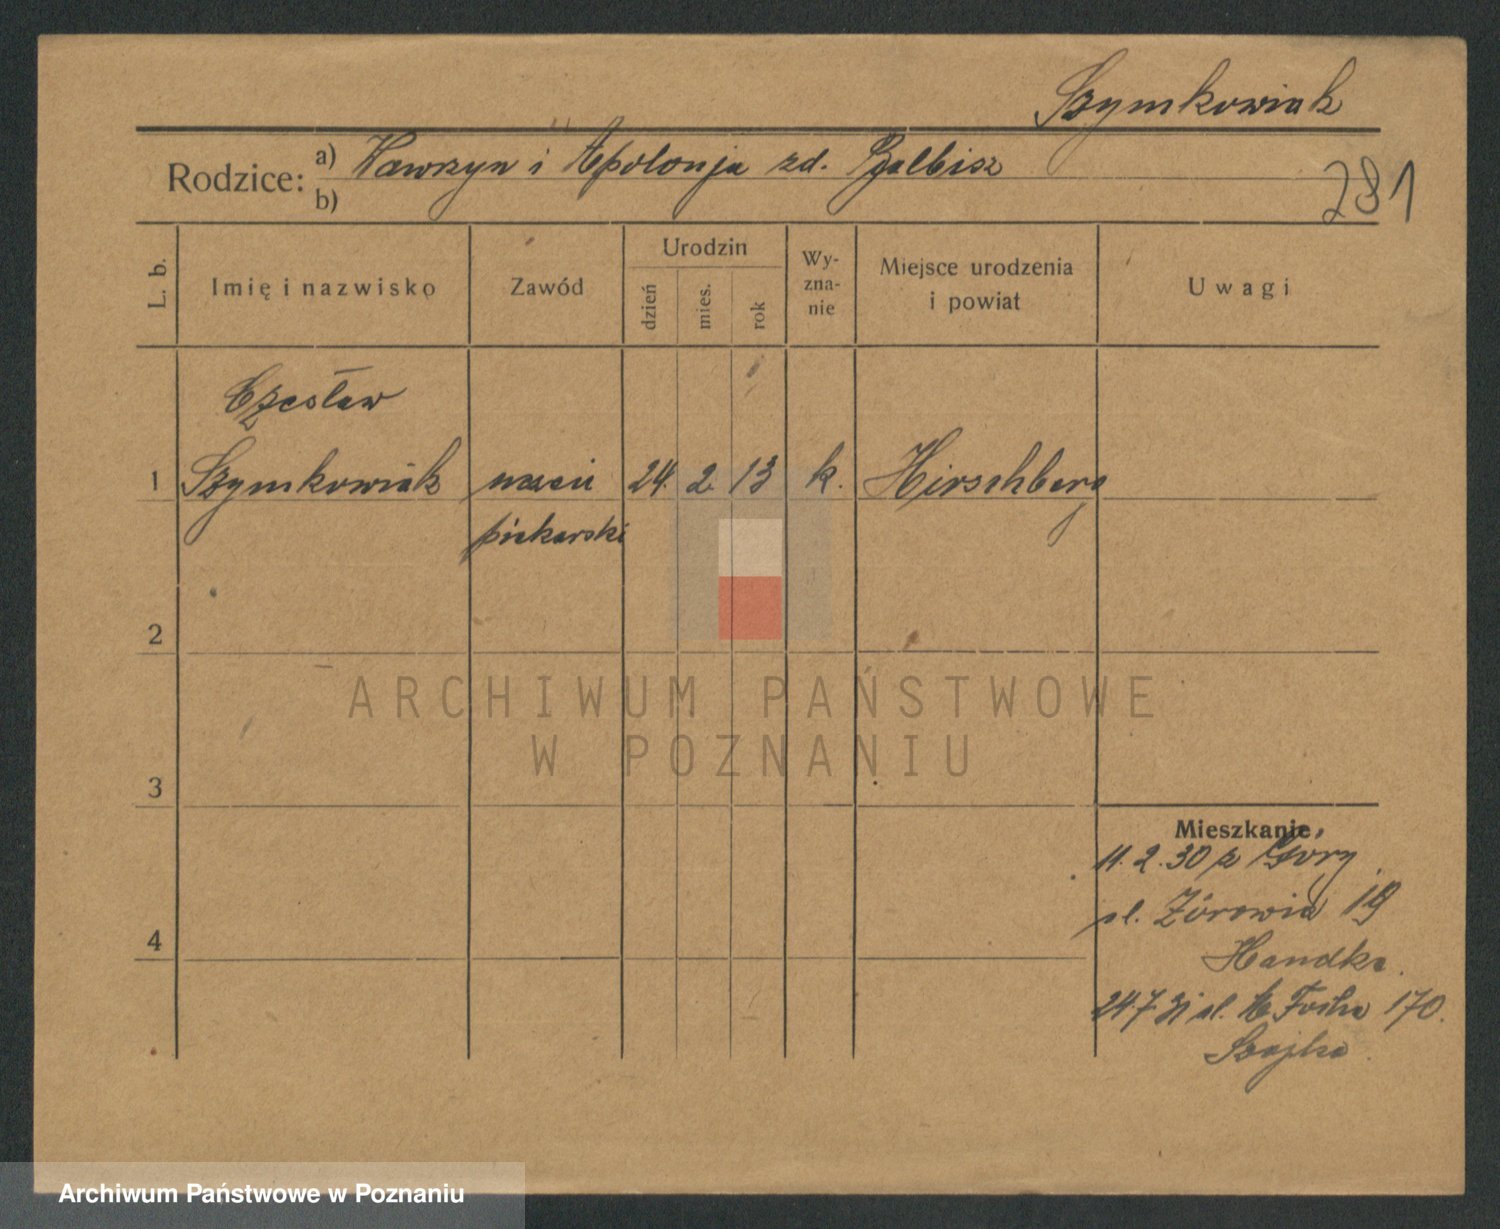 Szymkowiak
Rodzice: a) Wawrzyn i Apolonja zd. Balbisz
b)
281
L. b.
Imię i nazwisko
Zawód
Urodzin
dzień
mies.
rok
Wy-
zna-
nie
Miejsce urodzenia
i powiat
Uwagi
Czesław
1 Szymkowiak uczeń 24. 2. 13 k. Hirschberg
piekarski
2
ARCHIWUM PAŃSTWOWE
W POZNANIU
3
Mieszkanie,
11. 2. 30 z Góry
ul. Żórawia 19
Handke.
4
24 7 31 ul. M Focha 170.
Szajka.
Archiwum Państwowe w Poznaniu